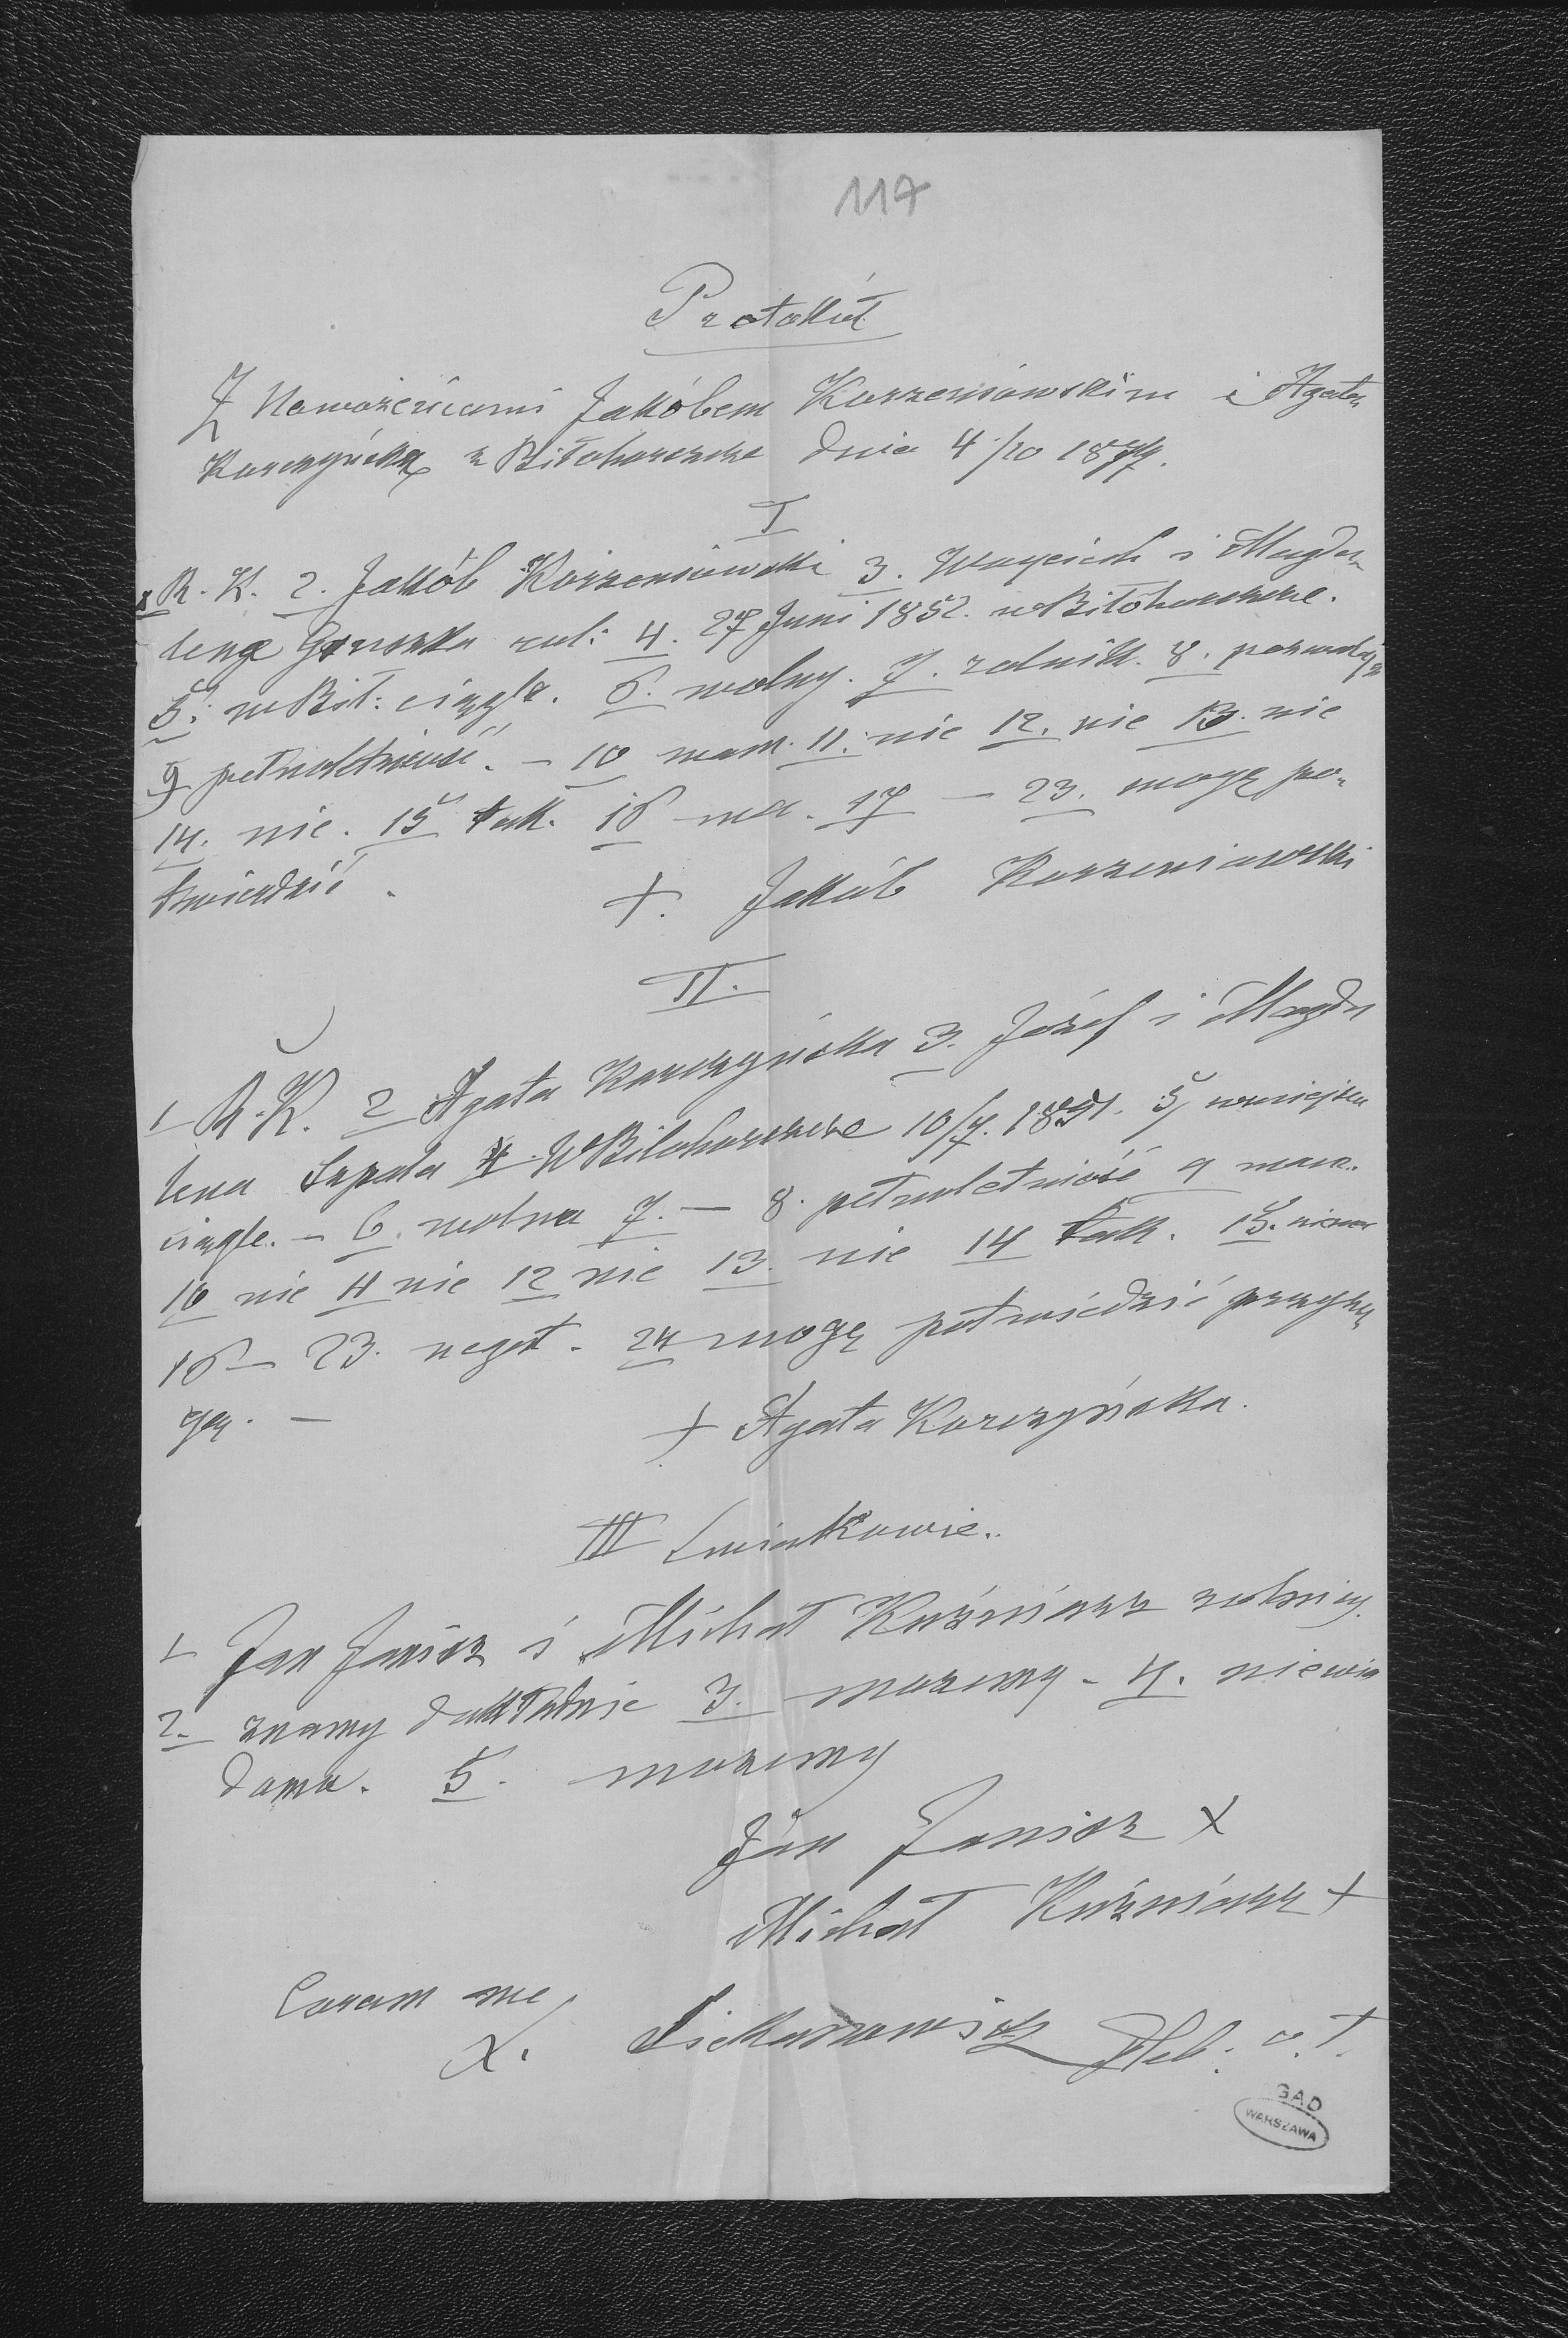 117
Protokół
Z Nowożeńcami Jakóbem Korzeniowskim i Agatą
Korczyńską z Biłohorszcze dnia 4/10 1877.
I
1 R. K. 2. Jakób Korzeniowski 3. Wojciech i Magda-
lena rol: 4. 27 Juni 1852. w Biłohorszcze.
5. w Bił: ciągle. 6. wolny. 7. rolnik. 8.
9 pełnoletniość. - 10 mam. 11. nie 12. nie 13. nie
14. nie. 15 tak. 16 17 - 23. mogę po-
twierdzić. +. Jakób Korzeniowski
II.
1 R. K. 2 Agata Korczyńska 3. Józef i Magda
lena 4. W Biłohorszcze 10/7. 1851. 5/ w miejscu
ciągle. - 6. wolna 7. - 8. pełnoletniość 9 mam.
10 nie 11 nie 12 nie 13. nie 14 tak. 15.
16 - 23. negat. 24 mogę potwierdzić przysię
gą. - + Agata Korczyńska.
III Swiadkowie..
1 Jan Janisz i Michał Kuźniarz rolnicy.
2. znamy dokładnie 3. możemy - 4. niewia
domo. 5. możemy
Jan Janisz X
Michał Kuźniarz +
Coram me
X.
GAD
WARSZAWA